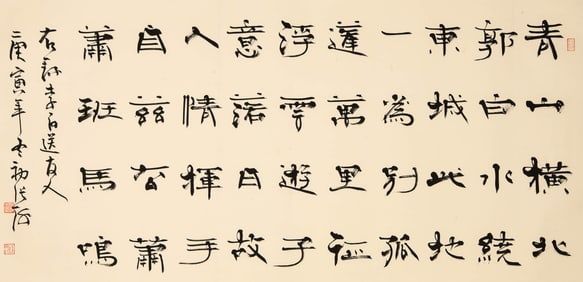 青山橫北
郭白水繞
東城此地
一為別孤
蓬萬里征
浮雲遊子
意落日故
人情揮手
自茲去蕭
蕭班馬鳴
右錄李白送友人
庚寅年冬初